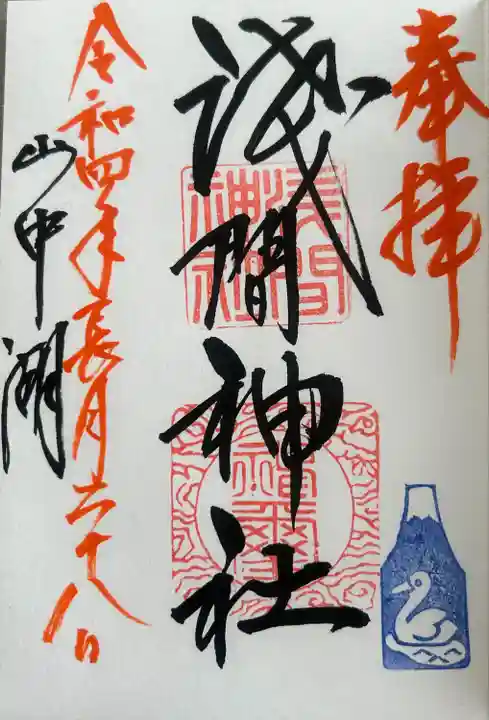 奉拝
浅間神社
浅間
神社
令和四年長月二十八日
山中湖